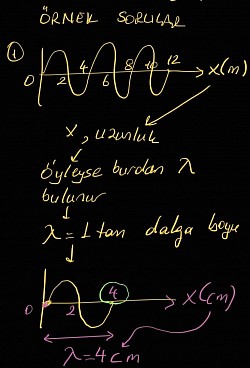 ÖRNEK SORULAR
1
0 2 4 6 8 10 12 x(m
x, uzunluk
Öyleyse burdan λ
bulunur
λ = 1 tam dalga boyu
0 2 4 x(cm)
λ = 4 cm